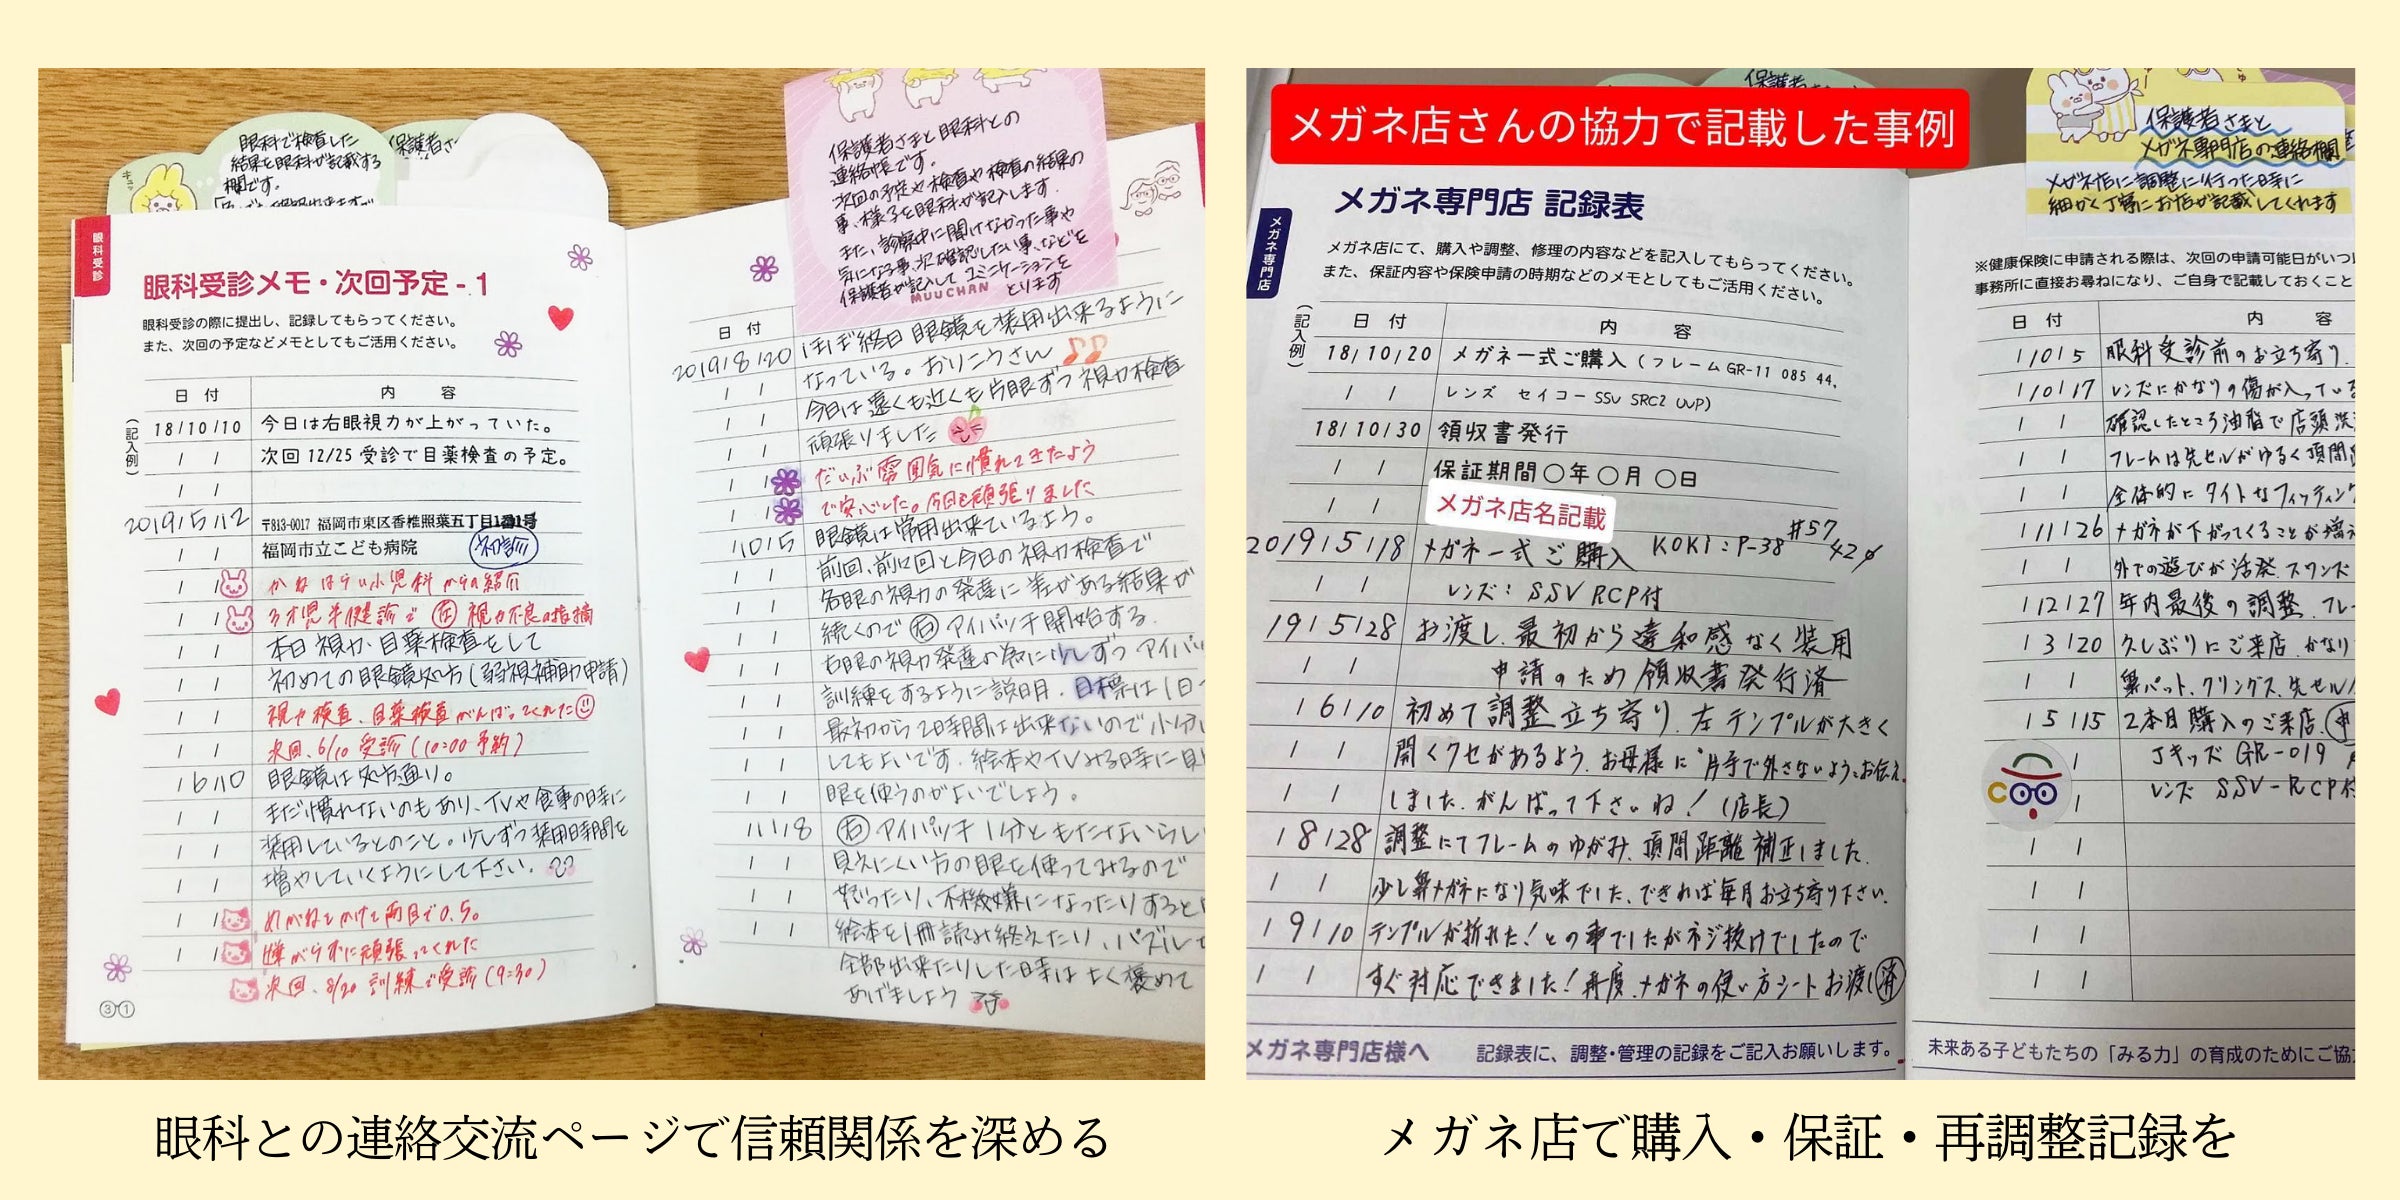 眼科で検査した
結果を眼科が記載する
欄です。
保護者さ
キュッ
保護者さまと眼科との
連絡帳です。
次回の予定や検査や検査の結果の
事、様子を眼科が記入します。
また、診察中に聞けなかった事や
気になる事、次確認したい事、などを
保護者が記入して コミニケーションを
とります
MUUCHAN
眼科受診
眼科受診メモ・次回予定 - 1
眼科受診の際に提出し、記録してもらってください。
また、次回の予定などメモとしてもご活用ください。
日 付 内 容
(記入例)
18/10/10 今日は右眼視力が上がっていた。
/ / 次回 12/25 受診で目薬検査の予定。
/ /
2019/5/12 〒813-0017 福岡市東区香椎照葉五丁目1番1号
/ / 福岡市立こども病院 初診
/ / かねはらい小児科からの紹介
/ / 3才児半健診で 左 視力不良の指摘
/ / 本日 視力、目薬検査をして
/ / 初めての眼鏡処方(弱視補助申請)
/ / 視力検査、目薬検査がんばってくれた
/ / 次回、6/10 受診(10:00 予約)
/6/10 眼鏡は処方通り。
/ / まだ慣れないのもあり、TVや食事の時に
/ / 装用しているとのこと。少しずつ装用時間を
/ / 増やしていくようにして下さい。
/ / めがねをかけて両目で0.5。
/ / 嫌がらずに頑張ってくれた
次回、8/20 訓練で受診(9:30)
31
日 付
2019/8/20 ほぼ終日眼鏡を装用出来るように
/ / なっている。おりこうさん
/ / 今日は遠くも近くも片眼ずつ視力検査
/ / 頑張りました
/ / だいぶ雰囲気に慣れてきたよう
/ / で安心した。今日も頑張りました
/10/5 眼鏡は常用出来ているよう。
/ / 前回、前々回と今日の視力検査で
/ / 各眼の視力の発達に差がある結果が
/ / 続くので 右 アイパッチ開始する。
/ / 右眼の視力発達の為に少しずつ アイパッ
/ / 訓練をするように説明。目標は1日
/ / 最初から2時間は出来ないので小分け
/ / してもよいです。絵本やTVみる時に
/ / 眼を使うのがよいでしょう。
/11/8 右 アイパッチ 1分ともたないらし
/ / 見えにくい方の眼を使ってみるので
/ / 怒ったり、不機嫌になったりすると
/ / 絵本を1冊読み終えたり、パズルで
全部出来たりした時は よく褒めて
あげましょう
眼科との連絡交流ページで信頼関係を深める
メガネ店さんの協力で記載した事例
メガネ専門店
メガネ専門店 記録表
メガネ店にて、購入や調整、修理の内容などを記入してもらってください。
また、保証内容や保険申請の時期などのメモとしてもご活用ください。
(記入例)
日 付 内 容
18/10/20 メガネ一式ご購入(フレームGR-11 085 44、
/ / レンズ セイコーSSV SRC2 UVP)
18/10/30 領収書発行
/ / 保証期間〇年〇月〇日
/ /
メガネ店名記載
2019/5/18 メガネ一式ご購入 KOKI:P-38 #57 42
/ / レンズ:SSV RCP付
19/5/28 お渡し、最初から違和感なく装用
/ / 申請のため領収書発行済
/6/10 初めて調整立ち寄り、左テンプルが大きく
/ / 開くクセがあるよう。お母様に"片手で外さないようお伝え
/ / しました。がんばって下さいね!(店長)
/8/28 調整にてフレームのゆがみ、頂間距離補正しました。
/ / 少し鼻メガネになり気味でした、できれば毎月お立ち寄り下さい。
/9/10 テンプルが折れた!との事でしたがネジ抜けでしたので
/ / すぐ対応できました!再度、メガネの使い方シートお渡し済
メガネ専門店様へ 記録表に、調整・管理の記録をご記入お願いします。
保護者さまと
メガネ専門店の連絡欄
メガネ店に調整に行った時に
細かく丁寧にお店が記載してくれます
※健康保険に申請される際は、次回の申請可能日がいつ
事務所に直接お尋ねになり、ご自身で記載しておくこと
日 付 内 容
/10/5 眼科受診前のお立ち寄り、
/10/17 レンズにかなりの傷が入っている
/ / 確認したところ油脂で店頭洗
/ / フレームは先セルがゆるく頂間
/ / 全体的にタイトなフィッティング
/11/26 メガネが下がってくることが増え
/ / 外での遊びが活発、スワンズ
/12/27 年内最後の調整、フレ
/3/20 久しぶりにご来店、かなり
/ / 鼻パット、クリングス、先セル
/5/15 2本目購入のご来店、申
/ JキッズGR-019
/ レンズ SSV-RCP付
COO
未来ある子どもたちの「みる力」の育成のためにご協
メガネ店で購入・保証・再調整記録を